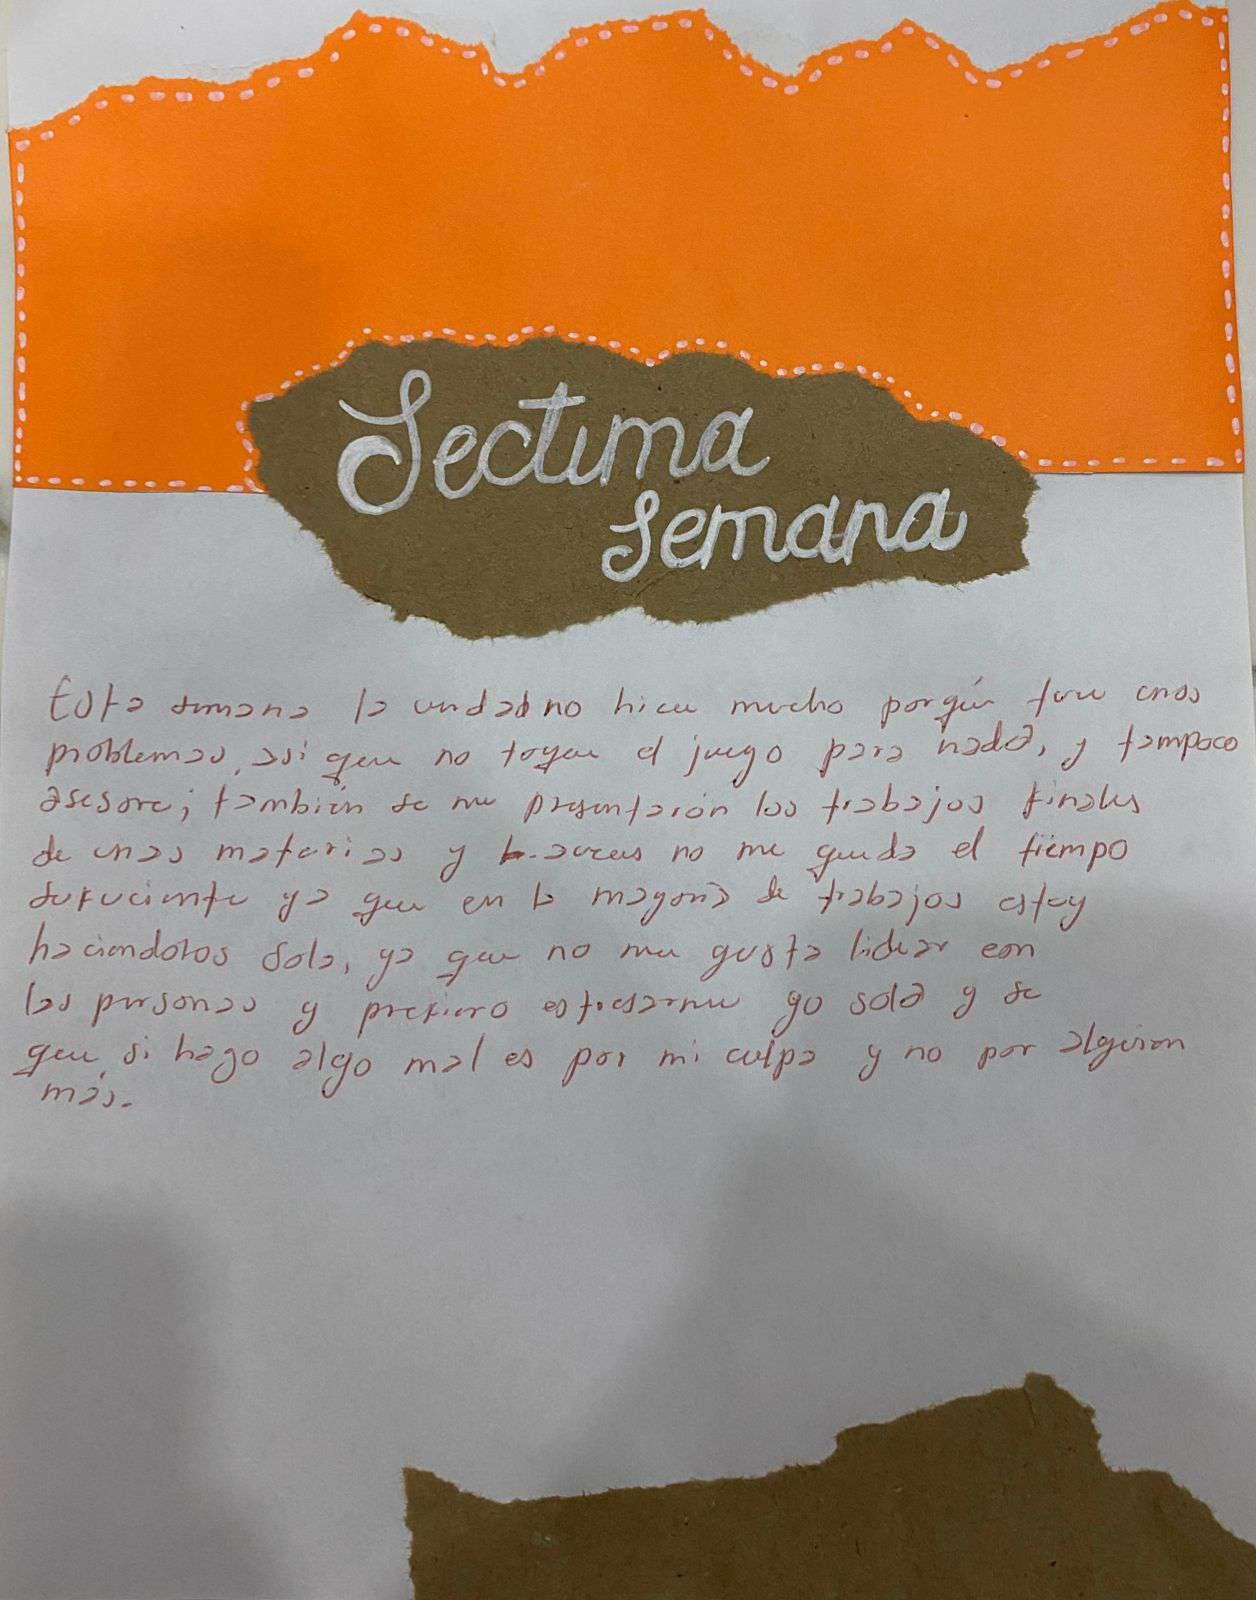 Sectima
semana
Esta semana la verdad no hice mucho porqué tuve unos
problemas, asi que no toque el juego para nada, y tampoco
asesore; también se me presentarón los trabajos finales
de unas materias y aveces no me queda el tiempo
sufuciente ya que en la mayoria de trabajos estoy
haciendolos sola, ya que no me gusta lidear con
las personas y prefiero estresarme yo sola y se
que si hago algo mal es por mi culpa y no por alguien
más.